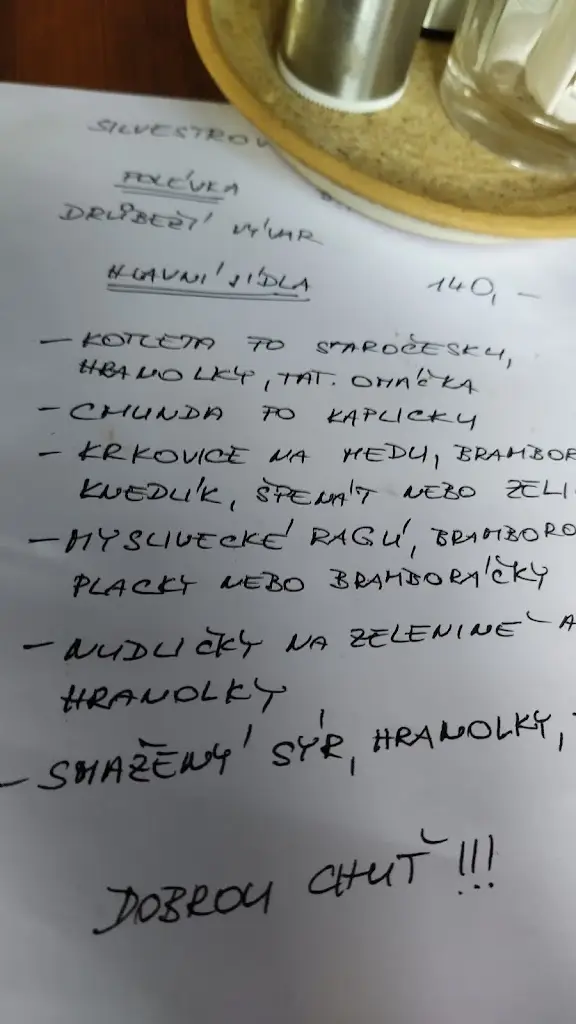 SILVESTROV
POLÉVKA
DRŮBEŽÍ VÝVAR
HLAVNÍ JÍDLA 140,-
- KOTLETA PO STAROČESKU,
HRANOLKY, TAT. OMÁČKA
- CMUNDA PO KAPLICKU
- KRKOVICE NA MEDU, BRAMBOR
KNEDLÍK, ŠPENÁT NEBO ZELI
- MYSLIVECKÉ RAGÚ, BRAMBORO
PLACKY NEBO BRAMBORÁČKY
- NUDLIČKY NA ZELENINĚ A
HRANOLKY
- SMAŽENÝ SÝR, HRANOLKY,
DOBROU CHUŤ!!!